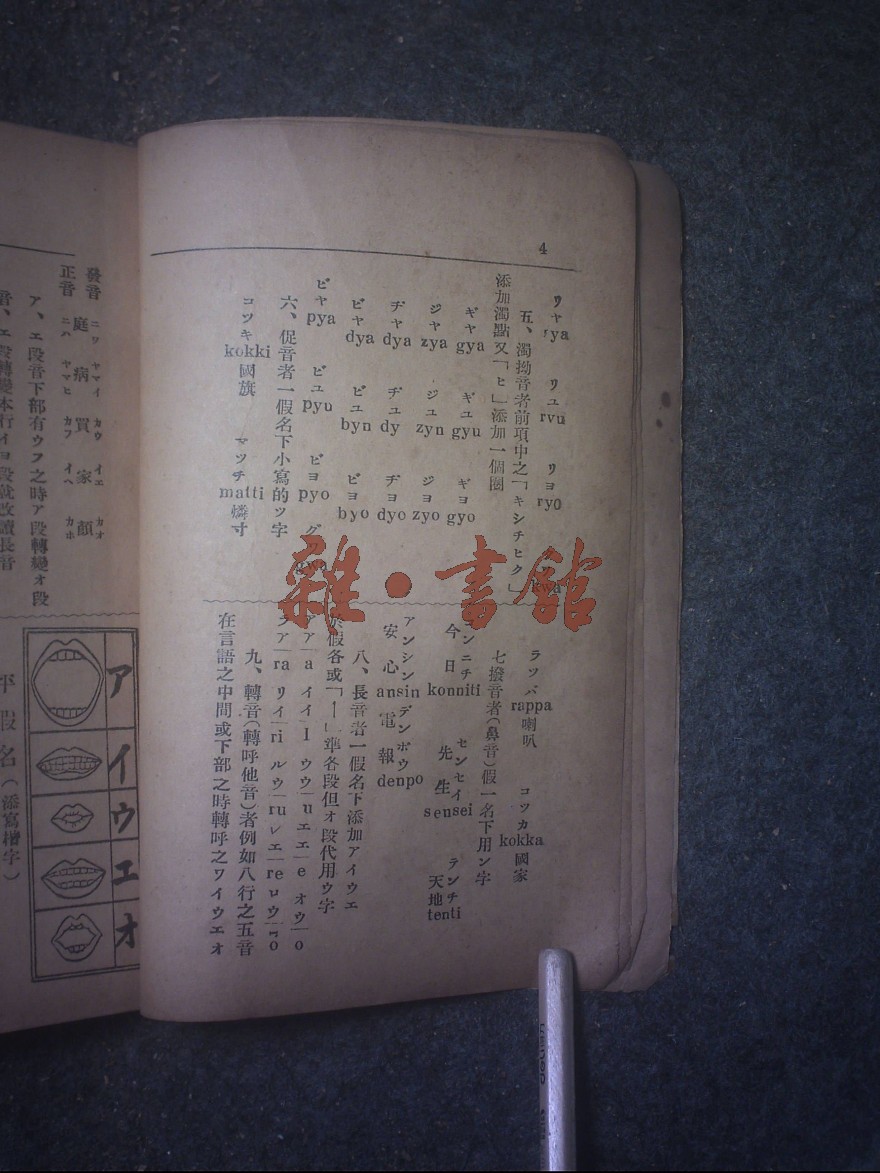 4
リャrya リュrvu リョryo クワkwa
五、濁拗音者前項中之「キシチヒク」
添加濁點又「ヒ」添加一個圈
ギャgya ギュgyu ギョgyo
ジャzya ジュzyn ジョzyo
ヂャdya ヂュdy ヂョdyo
ビャdya ビュbyn ビョbyo
ピャpya ピュpyu ピョpyo グワgwa
六、促音者一假名下小寫的ツ字
コツキkokki國旗 マツチmatti燐寸
ラツパrappa喇叭 コツカkokka國家
七撥音者(鼻音)假一名下用ン字
コンニチ今日konniti センセイ先生sensei テンチ天地tenti
アンシン安心ansin デンポウ電報denpo
八、長音者一假名下添加アイウエ
於假各或「ー」準各段但オ段代用ウ字
アア|a イイ|I ウウ|u エエ|e オウ|o
ラア|ra リイ|ri ルウ|ru レエ|re ロウ|ro
九、轉音(轉呼他音)者例如八行之五音
在言語之中間或下部之時轉呼之ワイウエオ
發音 ニワ ヤマイ カウ イエ カオ
庭 病 買 家 顏
正音 ニハ ヤマヒ カフ イヘ カホ
ア、エ段音下部有ウフ之時ア段轉變オ段
音、エ段轉變本行イヨ段就改讀長音
ア
イ
ウ
エ
オ
平假名(添寫楷字)
雜·書館